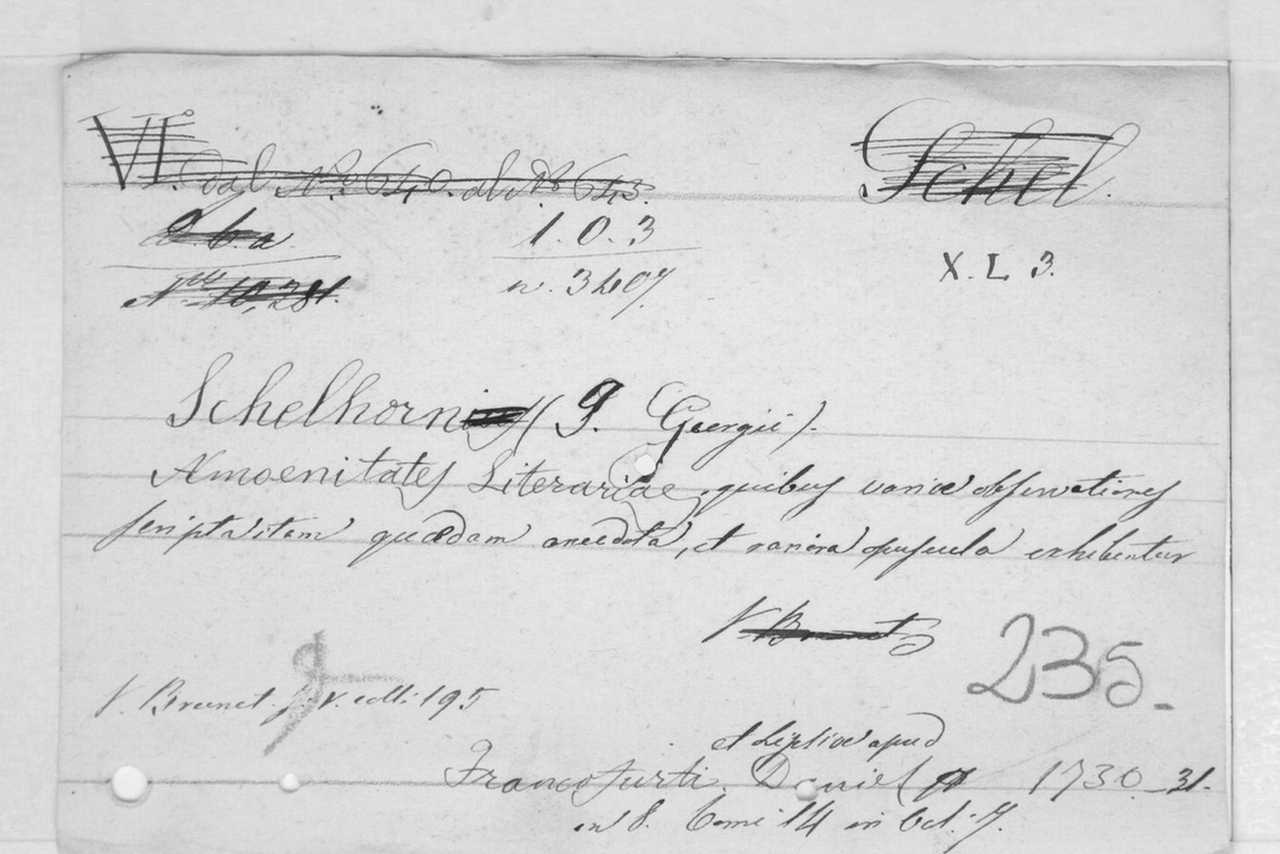 VI. dal N.º 640. al N.º 643.
Schel.
2. 6. a
1. 0. 3
X. L 3.
N.ro 10,281.
n. 3407
Schelhorn (J. Georgii).
Amoenitates Literariae, quibus variæ observationes
scripta item quædam anecdota, et rariora opuscula exhibentur
V. Brunet
235.
V. Brunet. V. coll. 195
et Lipsiæ apud
Francofurti. Daniel 1730-31.
in 8. Tomi 14 in Vol. 7.